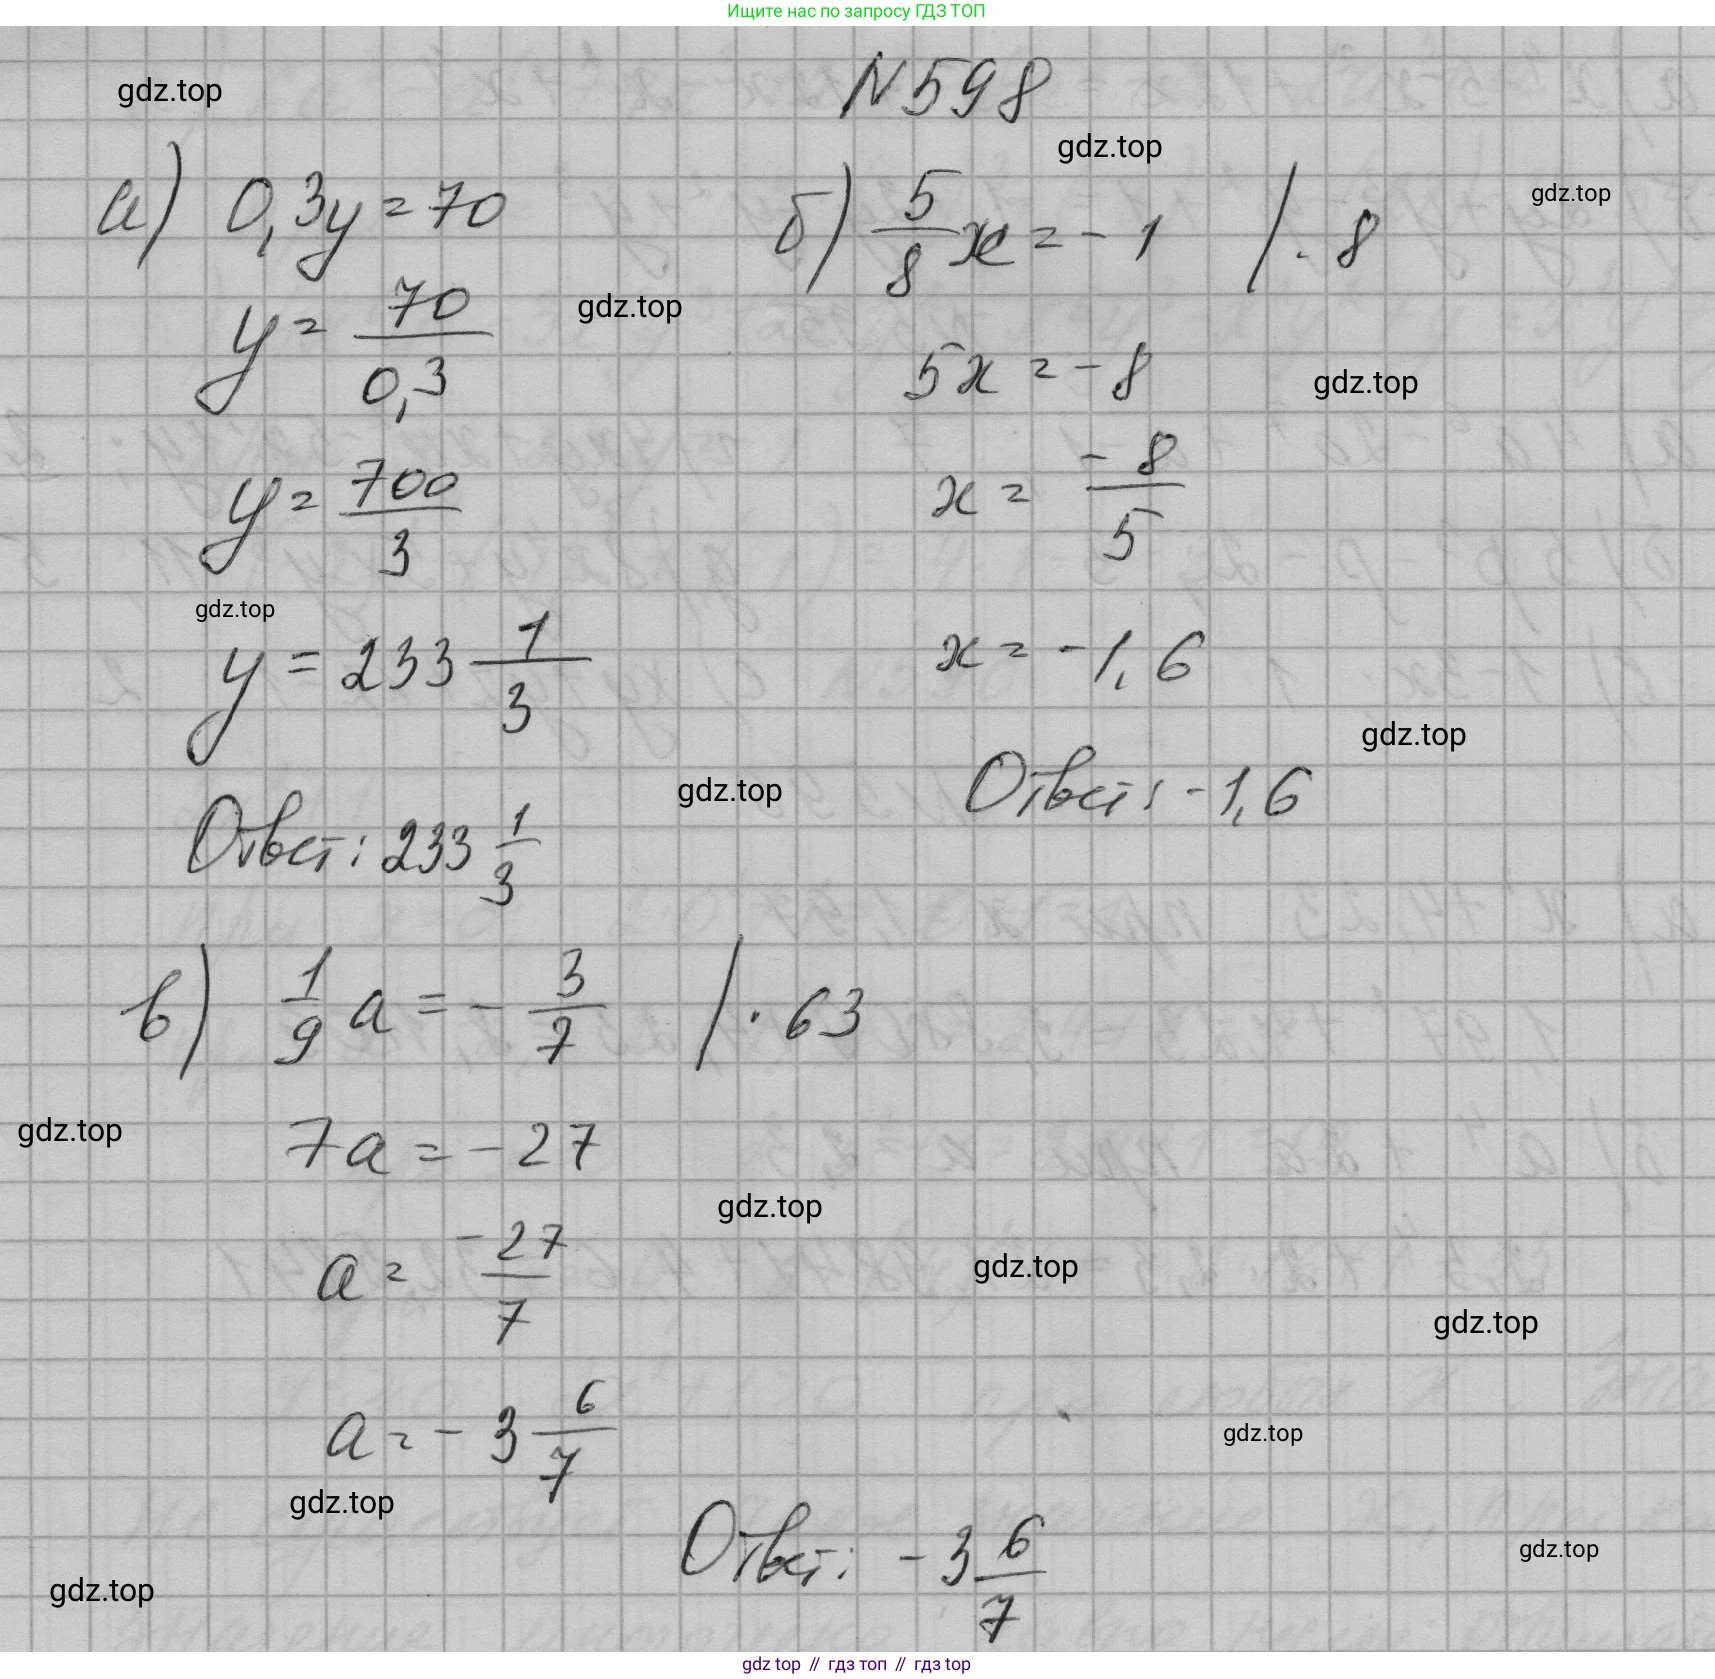 Ищите нас по запросу ГДЗ ТОП
N 598
gdz.top
gdz.top
gdz.top
а) 0,3y = 70
y = 70/0,3
gdz.top
y = 700/3
gdz.top
y = 233 1/3
gdz.top
Ответ: 233 1/3
б) 5/8 x = -1 / · 8
5x = -8
gdz.top
x = -8/5
x = -1,6
gdz.top
Ответ: -1,6
в) 1/9 a = - 3/7 / · 63
gdz.top
7a = -27
gdz.top
a = -27/7
gdz.top
gdz.top
a = -3 6/7
gdz.top
gdz.top
Ответ: -3 6/7
gdz.top
gdz.top
gdz top // гдз топ // гдз top